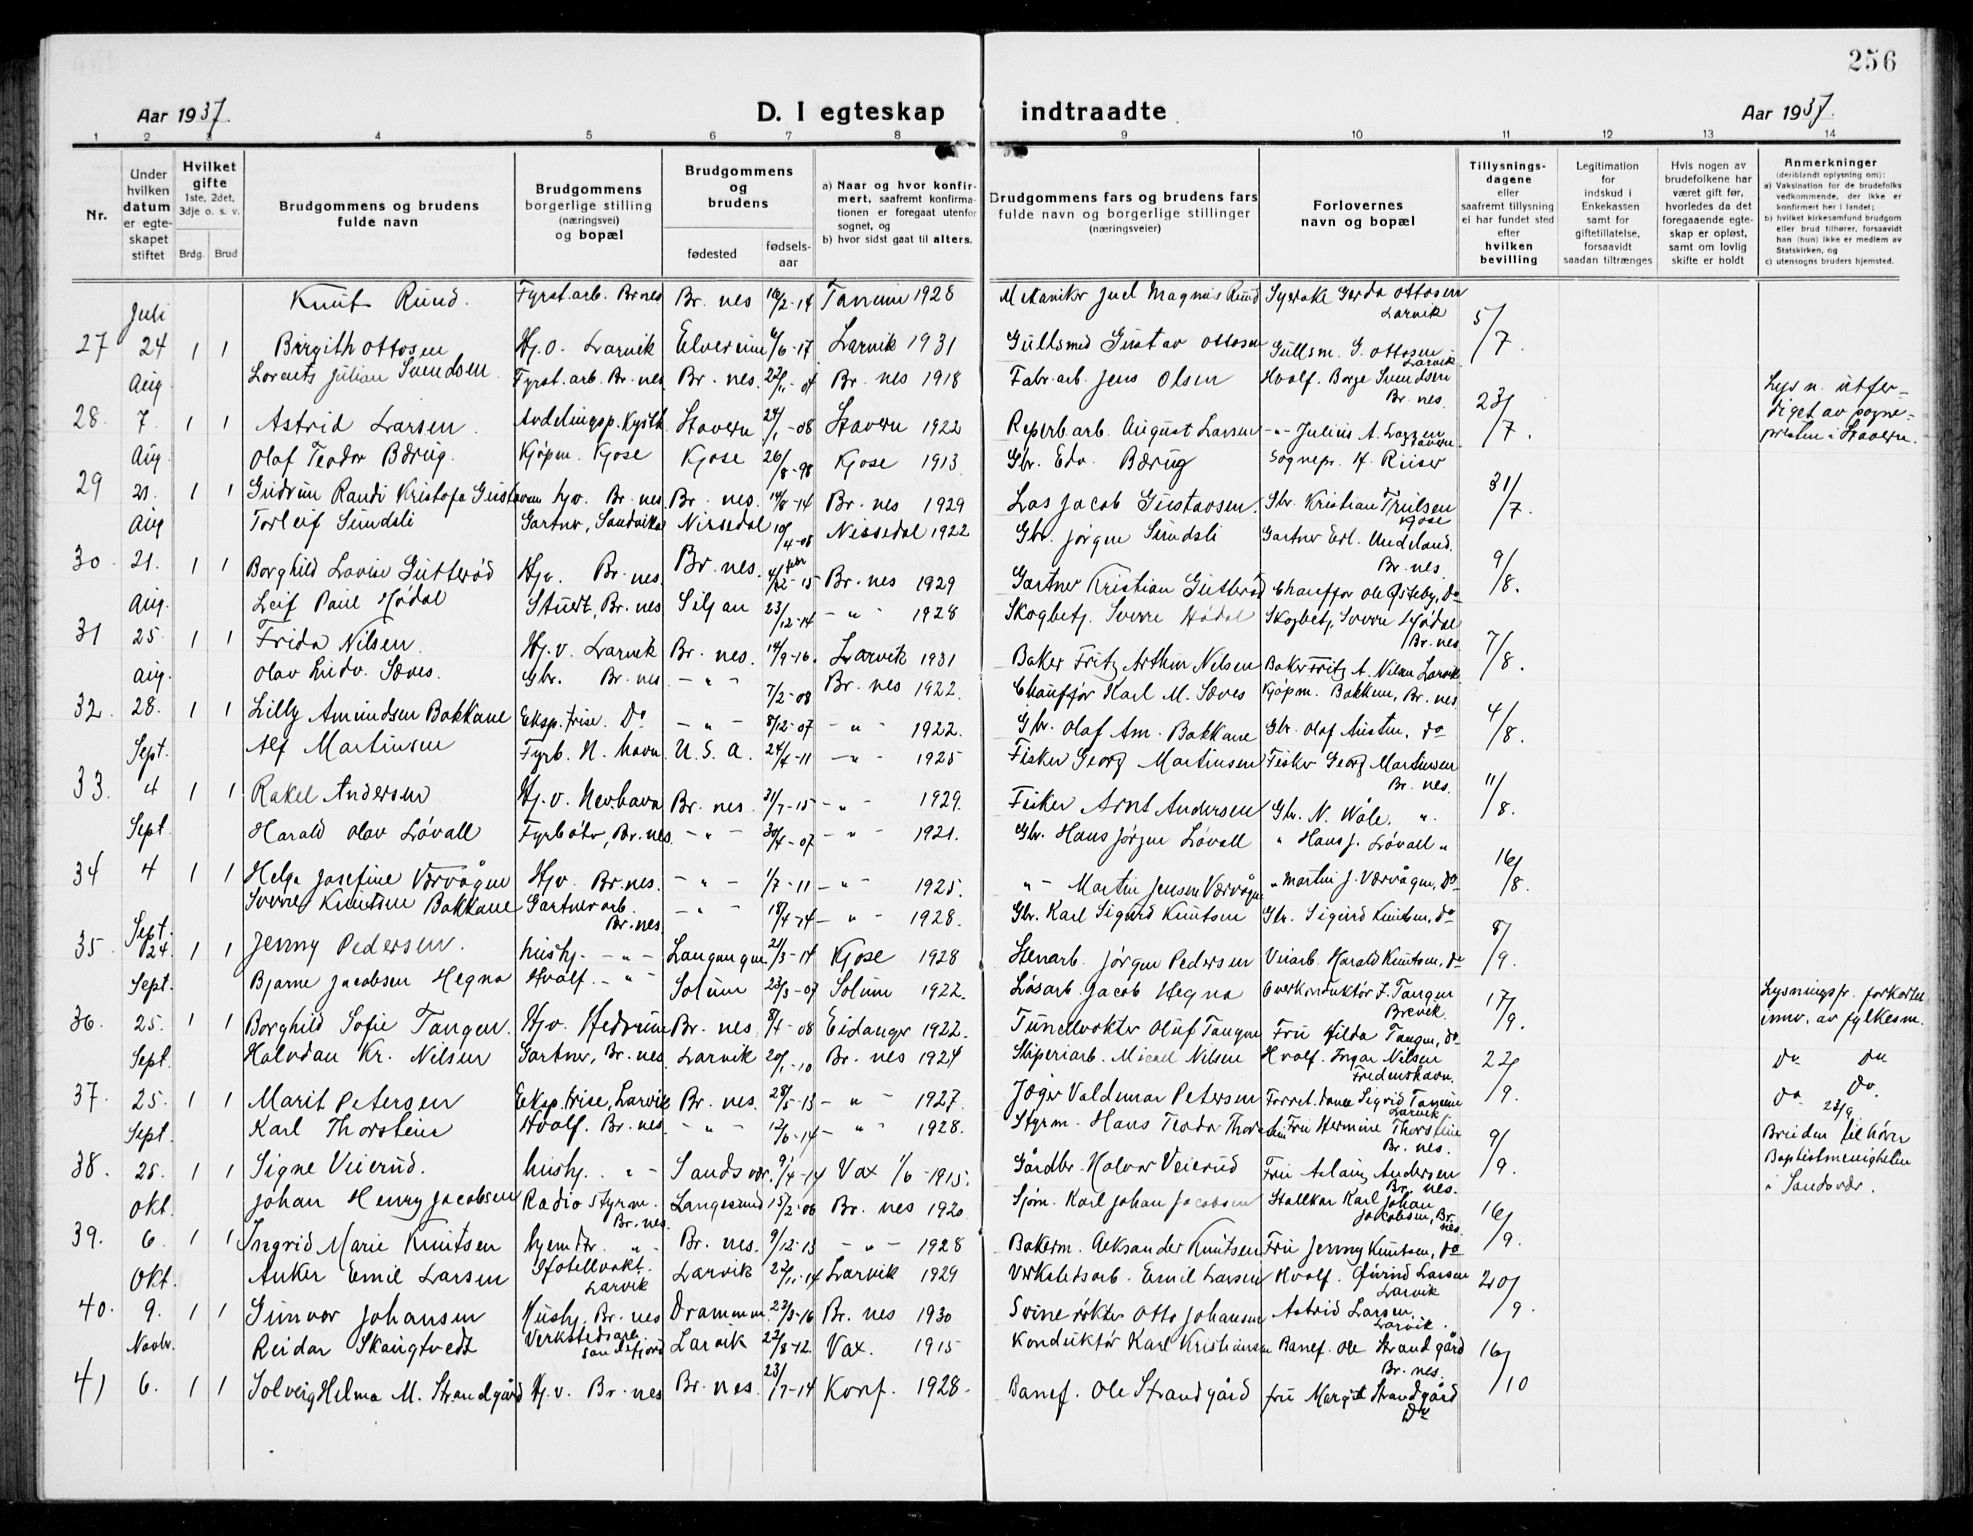 256
Aar 1937. D. I egteskap indtraadte Aar 1937.
1 2 3 4 5 6 7 8 9 10 11 12 13 14
Nr.
Under hvilken datum er egteskapet stiftet
Hvilket gifte 1ste, 2det, 3dje o. s. v.
Brdg. Brud
Brudgommens og brudens fulde navn
Brudgommens borgerlige stilling (næringsvei) og bopæl
Brudgommens og brudens
fødested fødselsaar
a) Naar og hvor konfirmert, saafremt konfirmationen er foregaat utenfor sognet, og
b) hvor sidst gaat til alters.
Brudgommens fars og brudens fars fulde navn og borgerlige stillinger (næringsveier)
Forlovernes navn og bopæl
Tillysningsdagene eller saafremt tillysning ei har fundet sted efter hvilken bevilling
Legitimation for indskud i Enkekassen samt for giftetillatelse, forsaavidt saadan tiltrænges
Hvis nogen av brudefolkene har været gift før, hvorledes da det foregaaende egteskap er opløst, samt om lovlig skifte er holdt
Anmerkninger (deriblandt oplysning om):
a) Vaksination for de brudefolks vedkommende, der ikke er konfirmert her i landet;
b) hvilket kirkesamfund brudgom eller brud tilhører, forsaavidt han (hun) ikke er medlem av Statskirken, og
c) utensogns bruders hjemsted.
Juli Knut Ruud. Fyrst.arb. Br.nes Br. nes 16/2-14 Tanum 1928 Mekaniker Juel Magnus Ruud Syerske Gerda Ottosen Larvik 5/7.
27 24 1 1 Birgith Ottosen Hj.o. Larvik Elverum 6/6-17 Larvik 1931 Gullsmed Gustav Ottosen Gullsm. G. Ottosen Larvik
Aug Lorents Julian Svendsen Fyrst.arb. Br.nes Br. nes. 22/11-04 Br. nes 1918 Fabr.arb. Jens Olsen Hvalf. Borge Svendsen Br. nes. 23/7. Lysn. utferdiget av sognepresten i Stavern.
28. 7. 1 1 Astrid Larsen. Avdelingsp. Kysth. Stavern 24/1-08 Stavern 1922 Reperb.arb. August Larsen -"- Julius A. Larsen Stavern
Aug. Olaf Teodor Bærug. Kjøpm. Kjose Kjose 26/8-98 Kjose 1913. Gbr. Edv. Bærug Sognepr. H. Riiser 31/7.
29 21. 1 1 Gudrun Randi Kristofa Gustavsen hjv. Br. nes. Br. nes. 14/8-14 Br. nes 1929 Las Jacob Gustavsen. Gbr. Kristian Trulsen Kjose
Aug Torleif Sundsli Gartner, Sandvika Nissedal 10/4-08 Nissedal 1922 Gbr. Jørgen Sundsli Gartner Erl. Undeland. Br. nes. 9/8.
30. 21. 1 1 Borghild Lovise Gutterød Hjv. Br. nes. Br. nes. 4/12-15 Br. nes 1929 Gartner Kristian Gutterød Chauffør Ole Østeby, Do
Aug. Leif Paul Hødal Stuert, Br. nes Siljan 23/12-14 -"- 1928 Skogbetj. Sverre Hødal Skogbetj. Sverre Hødal Br. nes 7/8.
31 25. 1 1 Frida Nilsen. Hj.v. Larvik Br. nes. 14/9-16. Larvik 1931 Baker Fritz Arthur Nilsen Baker Fritz A. Nilsen Larvik
Aug. Olav Ludv. Sæves. Gbr. Br. nes -"- 7/2-08 Br. nes 1922. Chauffør Karl M. Sæves Kjøpm. Bakken, Br. nes. 4/8.
32. 28. 1 1 Lilly Amundsen Bakkane Eksp.trise. Do -"- 8/12-07 -"- 1922. Gbr. Olaf Am. Bakkane Gbr. Olaf Austen. do
Sept. Alf Martinsen Fyrb. N. havn U. S. A. 24/4-11 -"- 1925 Fisker Georg Martinsen Fisker Georg Martinsen Br. nes. 11/8.
33. 4 1 1 Rakel Andersen Hj.v. Nevlhavn Br. nes. 31/7-15 -"- 1929. Fisker Arnt Andersen Gbr. N. Wåle. ".
Sept. Harald Olav Løvall Fyrbøter, Br. nes. -"- 30/4-07 -"- 1921. Gbr. Hans Jørgen Løvall " Hans J. Løvall " 16/8.
34 4 1 1 Helga Josefine Værvågen Hjv. Br. nes. -"- 1/7-11 -"- 1925. "- Martin Jensen Værvågen " Martin J. Værvågen, do
Sept. Sverre Knutsen Bakkane Gartnerarb. Br. nes -"- 18/4-14 -"- 1928. Gbr. Karl Sigurd Knutsen Gbr. Sigurd Knutsen, do 8/9.
35. 24. 1 1 Jenny Pedersen. hushj. -"- Langangen 21/3-14 Kjose 1928 Stenarb. Jørgen Pedersen Veiarb. Harald Knutsen, do
Sept. Bjarne Jacobsen Hegna Hvalf. -"- Solum 23/3-07 Solum 1922. Løsarb. Jacob Hegna Overkonduktør J. Tangen Brevik 17/9. Lysningsfr. forkortet innv. av fylkesm.
36. 25. 1 1 Borghild Sofie Tangen. Hjv. Hedrum Br. nes. 8/4-08 Eidanger 1922. Tunellvokter Oluf Tangen Fru Hilda Tangen, do
Sept. Halvdan Kr. Nilsen Gartner, Br. nes. Larvik 20/1-10 Br. nes 1924 Sliperiarb. Micael Nilsen Hvalf. Ingar Nilsen Fredenshavn. 22/9. Do Do
37. 25. 1 1 Marit Petersen Eksp.trise, Larvik Br. nes. 28/5-13 -"- 1927. Jæger Valdemar Petersen Forret.dame Sigrid Tanum Larvik Do Do.
Sept. Karl Thorstein Hvalf. Br. nes. -"- 12/6-14 -"- 1928. Styrm. Hans Teodor Thorstein Fru Hermine Thorstein Br. nes. 9/9. 23/9 Bruden tilhører Baptistmenigheten i Sandsvær.
38. 25. 1 1 Signe Veierud. hushj. "- Sandsvær. 9/4-14 Vax 1/6-1915. Gårdbr. Halvor Veierud Fru Aslaug Andersen Br. nes.
Okt. Johan Henry Jacobsen Radiostyrm. Br. nes. Langesund 15/2-06 Br. nes 1920 Sjøm. Karl Johan Jacobsen Stallkar Karl Johan Jacobsen, Br. nes. 16/9.
39. 6. 1 1 Ingrid Marie Knutsen hjemdtr. "- Br. nes. 9/12-13 -"- 1928 Bakerm. Aeksander Knutsen Fru Jenny Knutsen, do
Okt. Anker Emil Larsen Hotellvakt. Larvik Larvik 22/11-14 Larvik 1929 Verkstedsarb. Emil Larsen Hvalf. Øivind Larsen Larvik 20/9.
40. 9. 1 1 Gunvor Johansen Hushj. Br. nes Drammen. 23/3-16 Br. nes 1930 Svinerøkter Otto Johansen Astrid Larsen. Larvik.
Novbr. Reidar Skaugtvedt Verkstedsarb. Sandefjord Larvik 22/8-12. Vax. 1915 Konduktør Karl Kristiansen Banef. Ole Strandgård Br. nes. 16/10
41 6. 1 1 Solveig Helma M. Strandgård Hj.v. Br. nes Br. nes. 23/7-14 Konf. 1928. Banef. Ole Strandgård fru Margit Strandgård Do